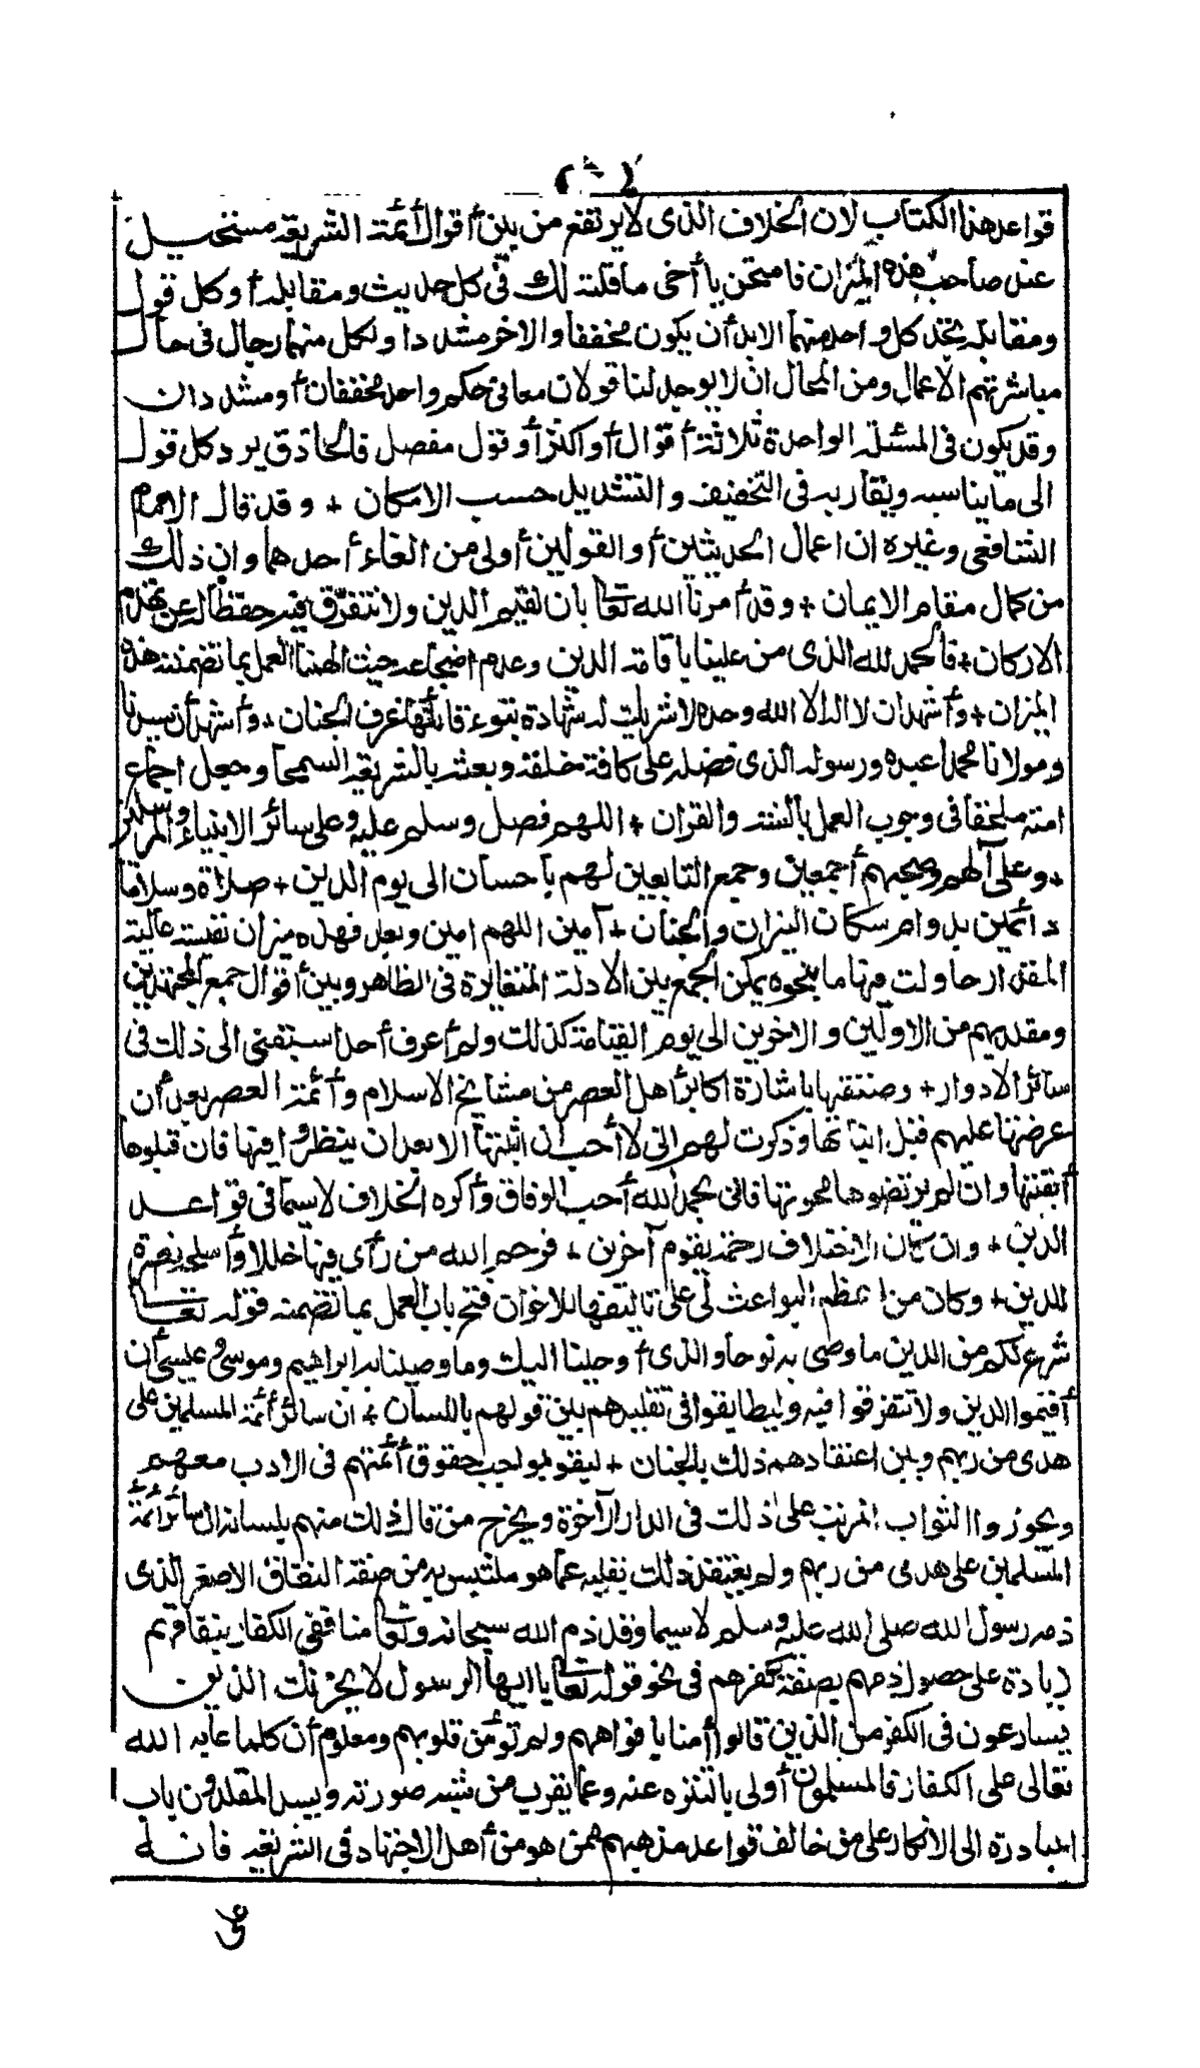 قواعد هذا الكتاب لان الخلاف الذى لا يرتفع من بين أقوال أئمة الشريعة مستحيل
عند صاحب هذه الميزان فامتحن يا أخى ما قلته لك فى كل حديث ومقابله أو كل قول
ومقابله تجد كل واحد منهما لابد أن يكون مخففا والاخر مشددا ولكل منهما رجال فى حال
مباشرتهم الاعمال ومن المحال ان لا يوجد لنا قولان معا فى حكم واحد مخففان أو مشددان
وقد يكون فى المسئلة الواحدة ثلاثة أقوال أو أكثر أو قول مفصل فالحاذق يرد كل قول
الى ما يناسبه ويقاربه فى التخفيف والتشديد حسب الامكان + وقد قال الامام
الشافعى وغيره ان اعمال الحديثين أو القولين أولى من الغاء أحدهما وان ذلك
من كمال مقام الايمان + وقد أمرنا الله تعالى بان نقيم الدين ولا نتفرق فيه حفظا له عن تهدم
الاركان + فالحمد لله الذى من علينا باقامة الدين وعدم اضجاعه حيث الهمنا العمل بما تضمنته هذه
الميزان + وأشهد ان لا اله الا الله وحده لا شريك له شهادة تبوء قائلها غرف الجنان + وأشهد أن سيدنا
ومولانا محمدا عبده ورسوله الذى فضله على كافة خلقه وبعثه بالشريعة السمحا وجعل اجماع
امته ملحقا فى وجوب العمل بالسنة والقران + اللهم فصل وسلم عليه وعلى سائر الانبياء والمرسلين
+ وعلى آلهم وصحبهم أجمعين وجميع التابعين لهم باحسان الى يوم الدين + صلاة وسلاما
دائمين بدوام سكان النيران والجنان + آمين اللهم امين وبعد فهذه ميزان نفيسة عالية
المقدار حاولت فيها ما بنحوه يمكن الجمع بين الادلة المتغايرة فى الظاهر وبين أقوال جميع المجتهدين
ومقلديهم من الاولين والاخرين الى يوم القيامة كذلك ولم أعرف أحدا سبقنى الى ذلك فى
سائر الادوار + وصنفتها باشارة اكابر أهل العصر من مشايخ الاسلام وأئمة العصر بعد أن
عرضتها عليهم قبل اثباتها وذكرت لهم انى لا أحب ان اثبتها الا بعد ان ينظروا فيها فان قبلوها
أبقيتها وان لم يرتضوها محوتها فانى بحمد الله أحب الوفاق وأكره الخلاف لاسيما فى قواعد
الدين + وان كان الاختلاف رحمة بقوم آخرين + فرحم الله من رأى فيها خللا وأصلحه نصرة
للدين + وكان من اعظم البواعث لى على تاليفها للاخوان فتح باب العمل بما تضمنه قوله تعالى
شرع لكم من الدين ما وصى به نوحا والذى أوحينا اليك وما وصينا به ابراهيم وموسى وعيسى أن
أقيموا الدين ولا تتفرقوا فيه وليطابقوا فى تقليدهم بين قولهم باللسان + ان سائر أئمة المسلمين على
هدى من ربهم وبين اعتقادهم ذلك بالجنان + ليقوموا بواجب حقوق أئمتهم فى الادب معهم
ويحوزوا الثواب المرتب على ذلك فى الدار الآخرة ويخرج من قال ذلك منهم بلسانه ان سائر أئمة
المسلمين على هدى من ربهم ولم يعتقد ذلك بقلبه عما هو ملتبس به من صفة النفاق الاصغر الذى
ذمه رسول الله صلى الله عليه وسلم لاسيما وقد ذم الله سبحانه وتعالى منافقى الكفار بنفاقهم
زيادة على حصول ذمهم بصفة كفرهم فى نحو قوله تعالى يا ايها الرسول لا يحزنك الذين
يسارعون فى الكفر من الذين قالوا أمنا بافواههم ولم تؤمن قلوبهم ومعلوم أن كلما عابه الله
تعالى على الكفار فالمسلمون أولى بالتنزه عنه وعما يقرب من شبه صورته ويسد المقلدون باب
المبادرة الى الانكار على من خالف قواعد مذهبهم ممن هو من أهل الاجتهاد فى الشريعة فانه
على